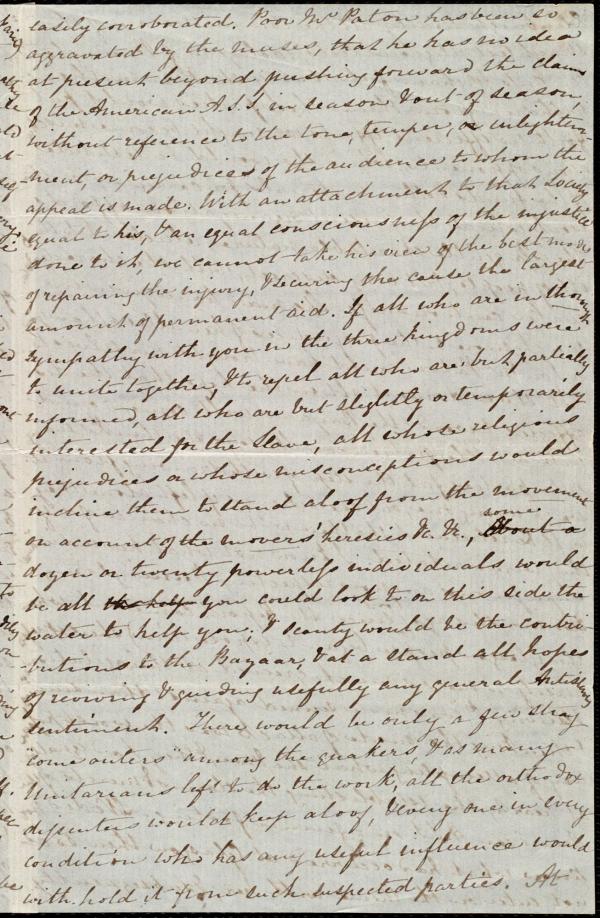 easily corroborated. Poor Mr Paton has been so
aggravated by the muses, that he has no idea
at present beyond pushing forward the claims
of the American A.S.S. in season & out of season,
without reference to the tone, temper, or enlighten-
ment, or prejudices of the audience to whom the
appeal is made. With an attachment to that Society
equal to his, & an equal consciousness of the injustice
done to it, we cannot take his view of the best mode
of repairing the injury, & securing the cause the largest
amount of permanent aid. If all who are in thorough
sympathy with you in the three kingdoms were
to unite together, & to repel all who are but partially
informed, all who are but slightly or temporarily
interested for the Slave, all whose religious
prejudices or whose misconceptions would
incline them to stand aloof from the movement
on account of the movers' heresies &c. &c., some
About a
dozen or twenty powerless individuals would
be all the help you could look to on this side the
water to help you, & scanty would be the contri-
butions to the Bazaar, & at a stand all hopes
of reviving & guiding usefully any general Antislavery
sentiment. There would be only a few stray
"come outers" among the quakers, & as many
Unitarians left to do the work, all the orthodox
dissenters would keep aloof, & every one in every
condition who has any useful influence would
with-hold it from such suspected parties. At